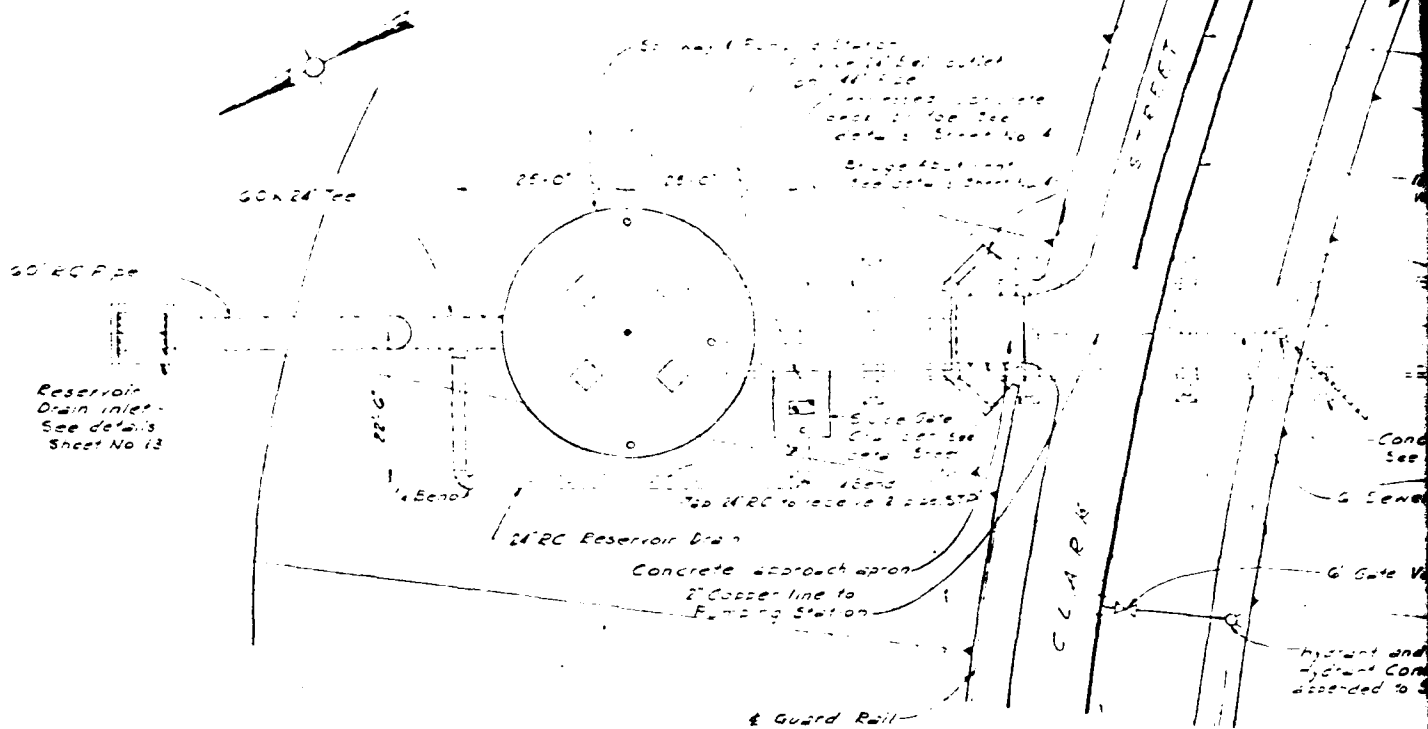 STREET
Pumping Station
outlet
concrete
See
details Sheet No 4
Bridge Abutment
See details Sheet No 4
25'-0" 25'-0"
60 x 24" Tee
60" RC Pipe
Reservoir
Drain inlet -
See details
Sheet No 13
22'-6"
Bend
Sluice Gate
Chamber See
Sheet
Bend
24" RC to receive 2
24" RC Reservoir Drain
Concrete approach apron
2" Copper line to
Pumping Station
CLARK
Conc
See
6" Sewe
6" Gate Va
Hydrant and
Hydrant Con
appended to S
℄ Guard Rail